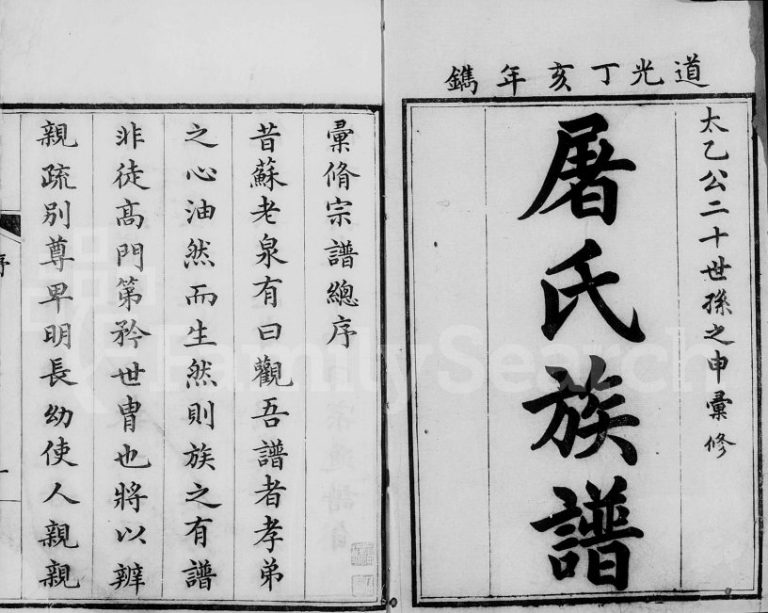 道光丁亥年鐫
太乙公二十世孫之申彙修
屠氏族譜
彙脩宗譜總序
昔蘇老泉有曰觀吾譜者孝弟
之心油然而生然則族之有譜
非徒高門第矜世胄也將以辨
親疏别尊卑明長幼使人親親
序
一
FamilySearch